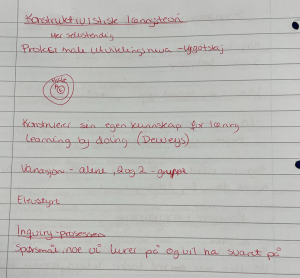 Konstruktivistiske læringsteori
Mer selvstendig
Proksimale utviklingsnива - Vygotskij
Konstruere sin egen kunnskap for læring
Learning by doing (Deweys)
Variasjon - alene, 2 og 2 - grupper
Elevstyrt
Inquiry-prosessen
Spørsmål, noe vi lurer på og vil ha svart på